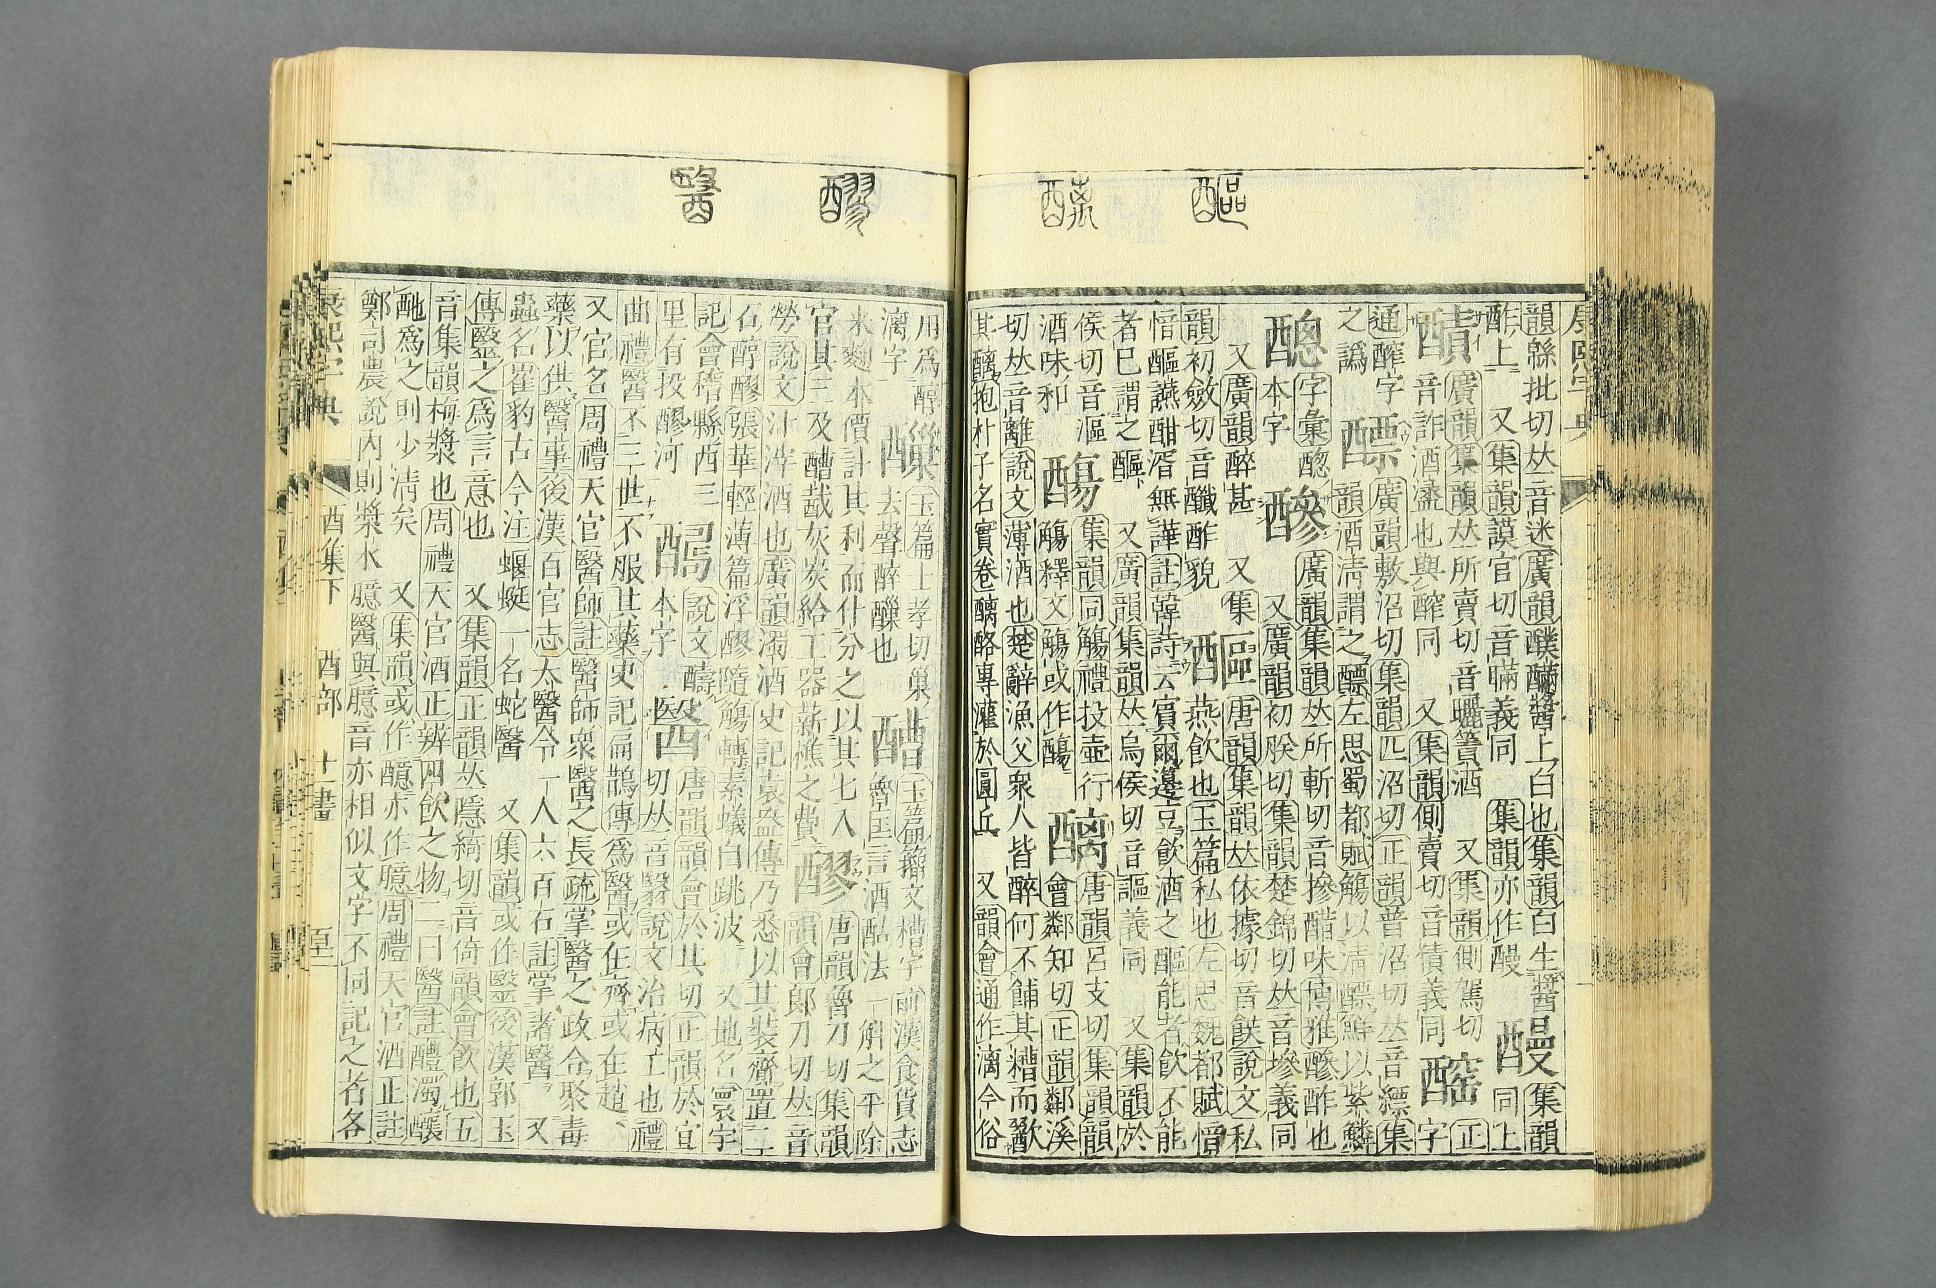 醧 醨
康熙字典
韻緜批切𠀤音迷廣韻醭醬上白也集韻白生醬醙集韻
酢上 又集韻謨官切音瞞義同 集韻亦作 同上
廣韻集韻𠀤所賣切音曬簀酒 又集韻側駕切 正
音詐酒盝也與醡同 又集韻側賣切音債義同 字
通醡字醥廣韻敷沼切集韻匹沼切正韻普沼切𠀤音縹集
之譌 韻酒淸謂之醥左思蜀都賦觴以淸醥鮮以紫鱗
醦廣韻集韻𠀤所斬切音摻醋味博雅醦酢也
本字 又廣韻初朕切集韻楚錦切𠀤音墋義同
又廣韻醉甚 又集 醧唐韻集韻𠀤依據切音飫說文私
韻初斂切音䤘酢貌 燕飮也玉篇私也左思魏都賦愔
愔醧讌酣湑無譁註韓詩云賓爾籩豆飮酒之醧能者飮不能
者已謂之醧 又廣韻集韻𠀤烏侯切音謳義同 又集韻於
侯切音漚 集韻同觴禮投壺行 醨唐韻呂支切集韻韻
酒味和 觴釋文觴或作 會鄰知切正韻鄰溪
切𠀤音離說文薄酒也楚辭漁父衆人皆醉何不餔其糟而歠
其醨抱朴子名實卷醨酪專灌於圓丘 又韻會通作漓今俗
醪 醫
用爲醇 玉篇上孝切巢 玉篇籀文糟字前漢食貨志
漓字 去聲醉也 魯匡言酒酤法一斛之平除
米麴本價計其利而什分之以其七入 醪唐韻魯刀切集韻
官其三及醩酨灰炭給工器薪樵之費 韻會郎刀切𠀤音
勞說文汁滓酒也廣韻濁酒史記袁盎傳乃悉以其裝齎置二
石醇醪張華輕薄篇浮醪隨觴轉素蟻自跳波 又地名寰宇
記會稽縣西三 說文 醫唐韻韻會於其切正韻於宜
里有投醪河 本字 切𠀤音毉說文治病工也禮
曲禮醫不三世不服其藥史記扁鵲傳爲醫或在齊或在趙
又官名周禮天官醫師註醫師衆醫之長疏掌醫之政令聚毒
藥以供醫事後漢百官志太醫令一人六百石註掌諸醫 又
蟲名崔豹古今注蝘蜓一名蛇醫 又集韻或作毉後漢郭玉
傳毉之爲言意也 又集韻正韻𠀤隱綺切音倚韻會飮也五
音集韻梅漿也周禮天官酒正辨四飮之物二曰醫註醴濁釀
酏爲之則少淸矣 又集韻或作醷亦作臆周禮天官酒正註
鄭司農說內則漿水臆醫與臆音亦相似文字不同記之者各
康熙字典 酉集下 酉部 十一畫